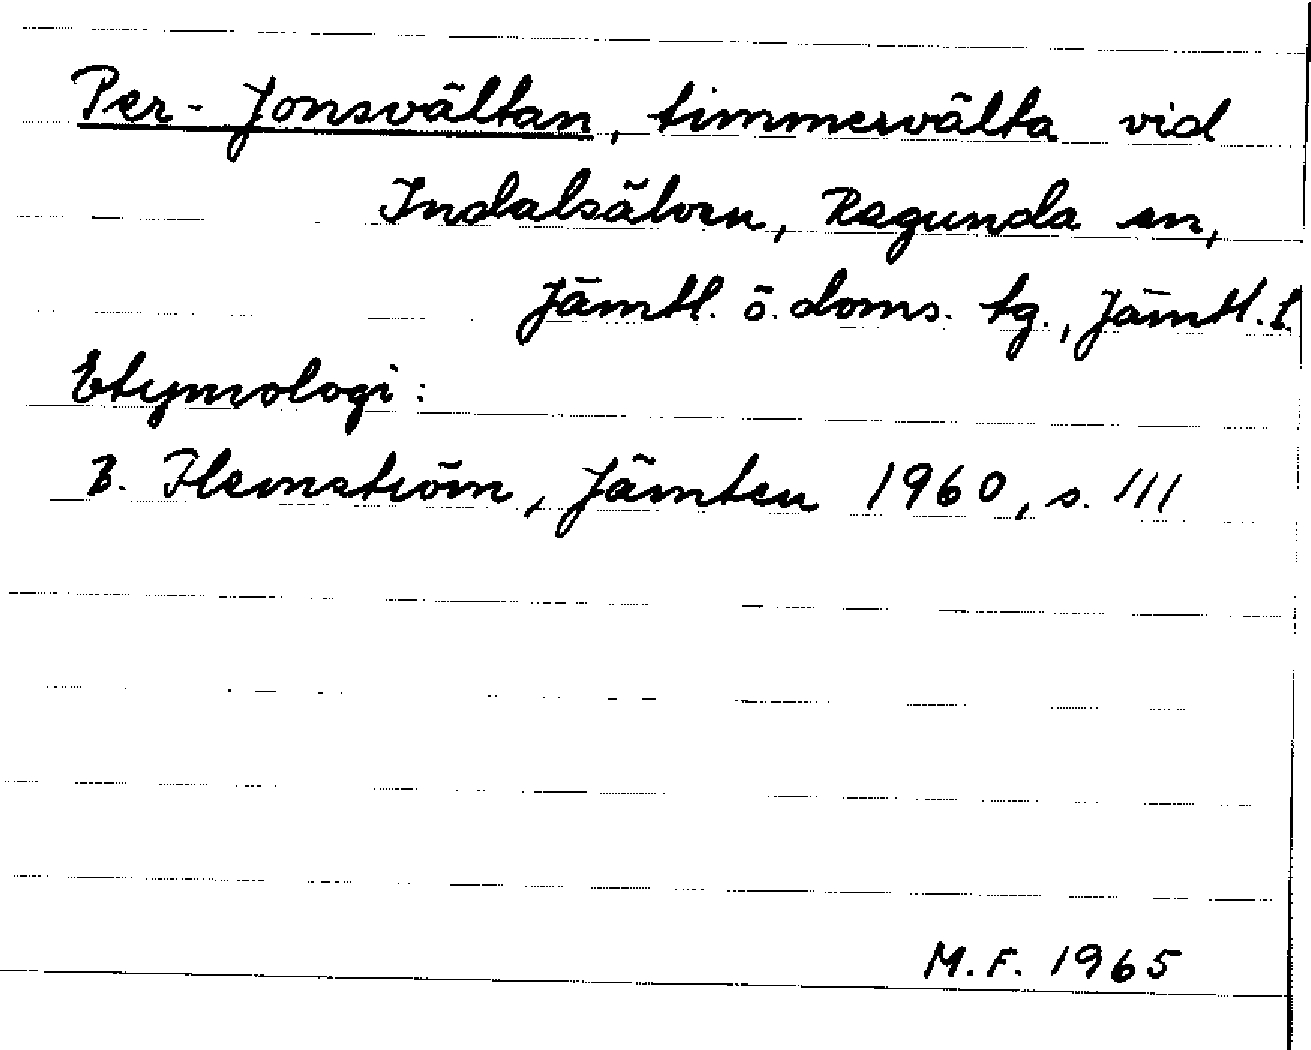 Per-Jonsvältan, timmervälta vid
Indalsälven, Ragunda sn,
Jämtl. ö. doms. tg., Jämtl. l
Etymologi:
B. Flemström, Jämten 1960, s. 111
M.F. 1965